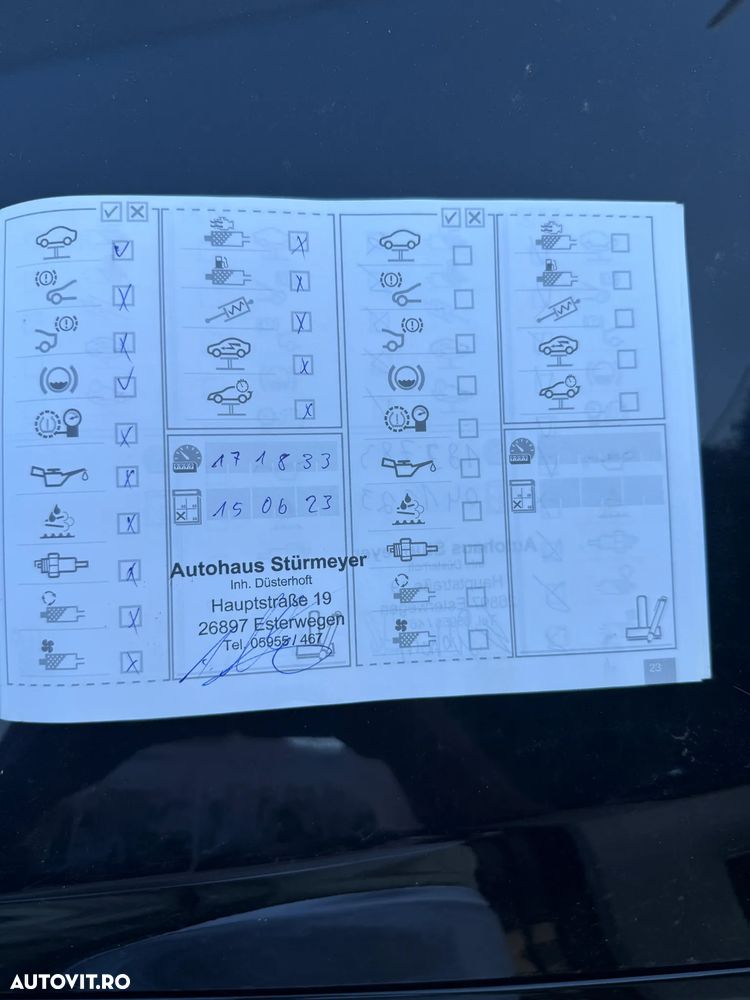 17 18 33
15 06 23
Autohaus Stürmeyer
Inh. Düsterhoft
Hauptstraße 19
26897 Esterwegen
Tel. 05955 / 467
23
AUTOVIT.RO